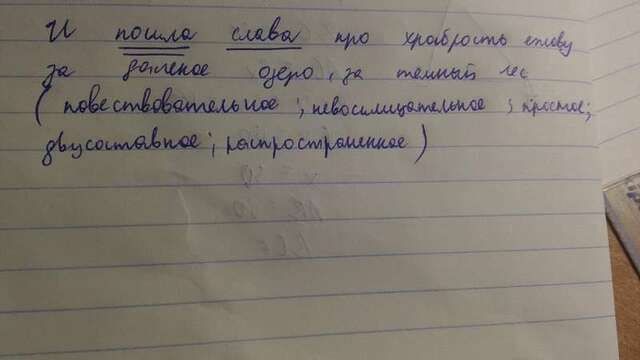 И пошла слава про храбрость ежову
за далекое озеро, за темный лес
(повествовательное; невосклицательное; простое;
двусоставное; распространенное)